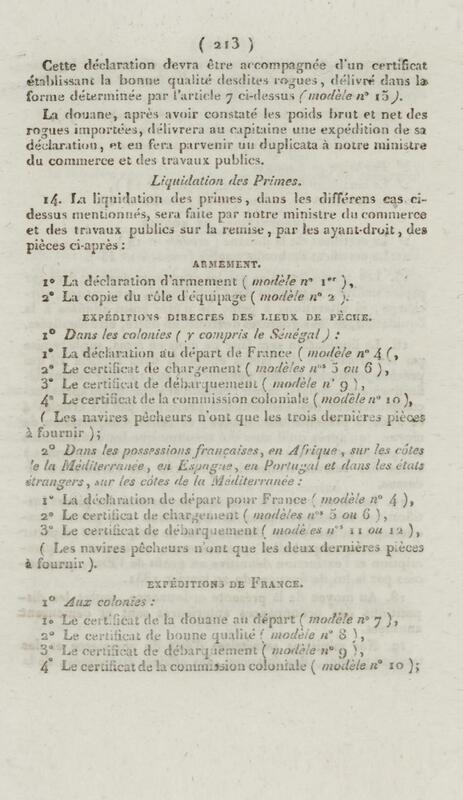 ( 213 )
Cette déclaration devra être accompagnée d'un certificat
établissant la bonne qualité desdites rogues, délivré dans la
forme déterminée par l'article 7 ci-dessus (modèle n° 15).
La douane, après avoir constaté les poids brut et net des
rogues importées, délivrera au capitaine une expédition de sa
déclaration, et en fera parvenir un duplicata à notre ministre
du commerce et des travaux publics.
Liquidation des Primes.
14. La liquidation des primes, dans les différens cas ci-
dessus mentionnés, sera faite par notre ministre du commerce
et des travaux publics sur la remise, par les ayant-droit, des
pièces ci-après :
ARMEMENT.
1° La déclaration d'armement ( modèle n° 1er ),
2° La copie du rôle d'équipage ( modèle n° 2 ).
EXPÉDITIONS DIRECTES DES LIEUX DE PÊCHE.
1° Dans les colonies ( y compris le Sénégal ) :
1° La déclaration au départ de France ( modèle n° 4 (,
2° Le certificat de chargement ( modèles nos 5 ou 6 ),
3° Le certificat de débarquement ( modèle n° 9 ),
4° Le certificat de la commission coloniale ( modèle n° 10 ),
( Les navires pêcheurs n'ont que les trois dernières pièces
à fournir );
2° Dans les possessions françaises, en Afrique, sur les côtes
de la Méditerranée, en Espagne, en Portugal et dans les états
étrangers, sur les côtes de la Méditerranée :
1° La déclaration de départ pour France ( modèle n° 4 ),
2° Le certificat de chargement ( modèles nos 5 ou 6 ),
3° Le certificat de débarquement ( modèles nos 11 ou 12 ),
( Les navires pêcheurs n'ont que les deux dernières pièces
à fournir ).
EXPÉDITIONS DE FRANCE.
1° Aux colonies :
1° Le certificat de la douane au départ ( modèle n° 7 ),
2° Le certificat de bonne qualité ( modèle n° 8 ),
3° Le certificat de débarquement ( modèle n° 9 ),
4° Le certificat de la commission coloniale ( modèle n° 10 );